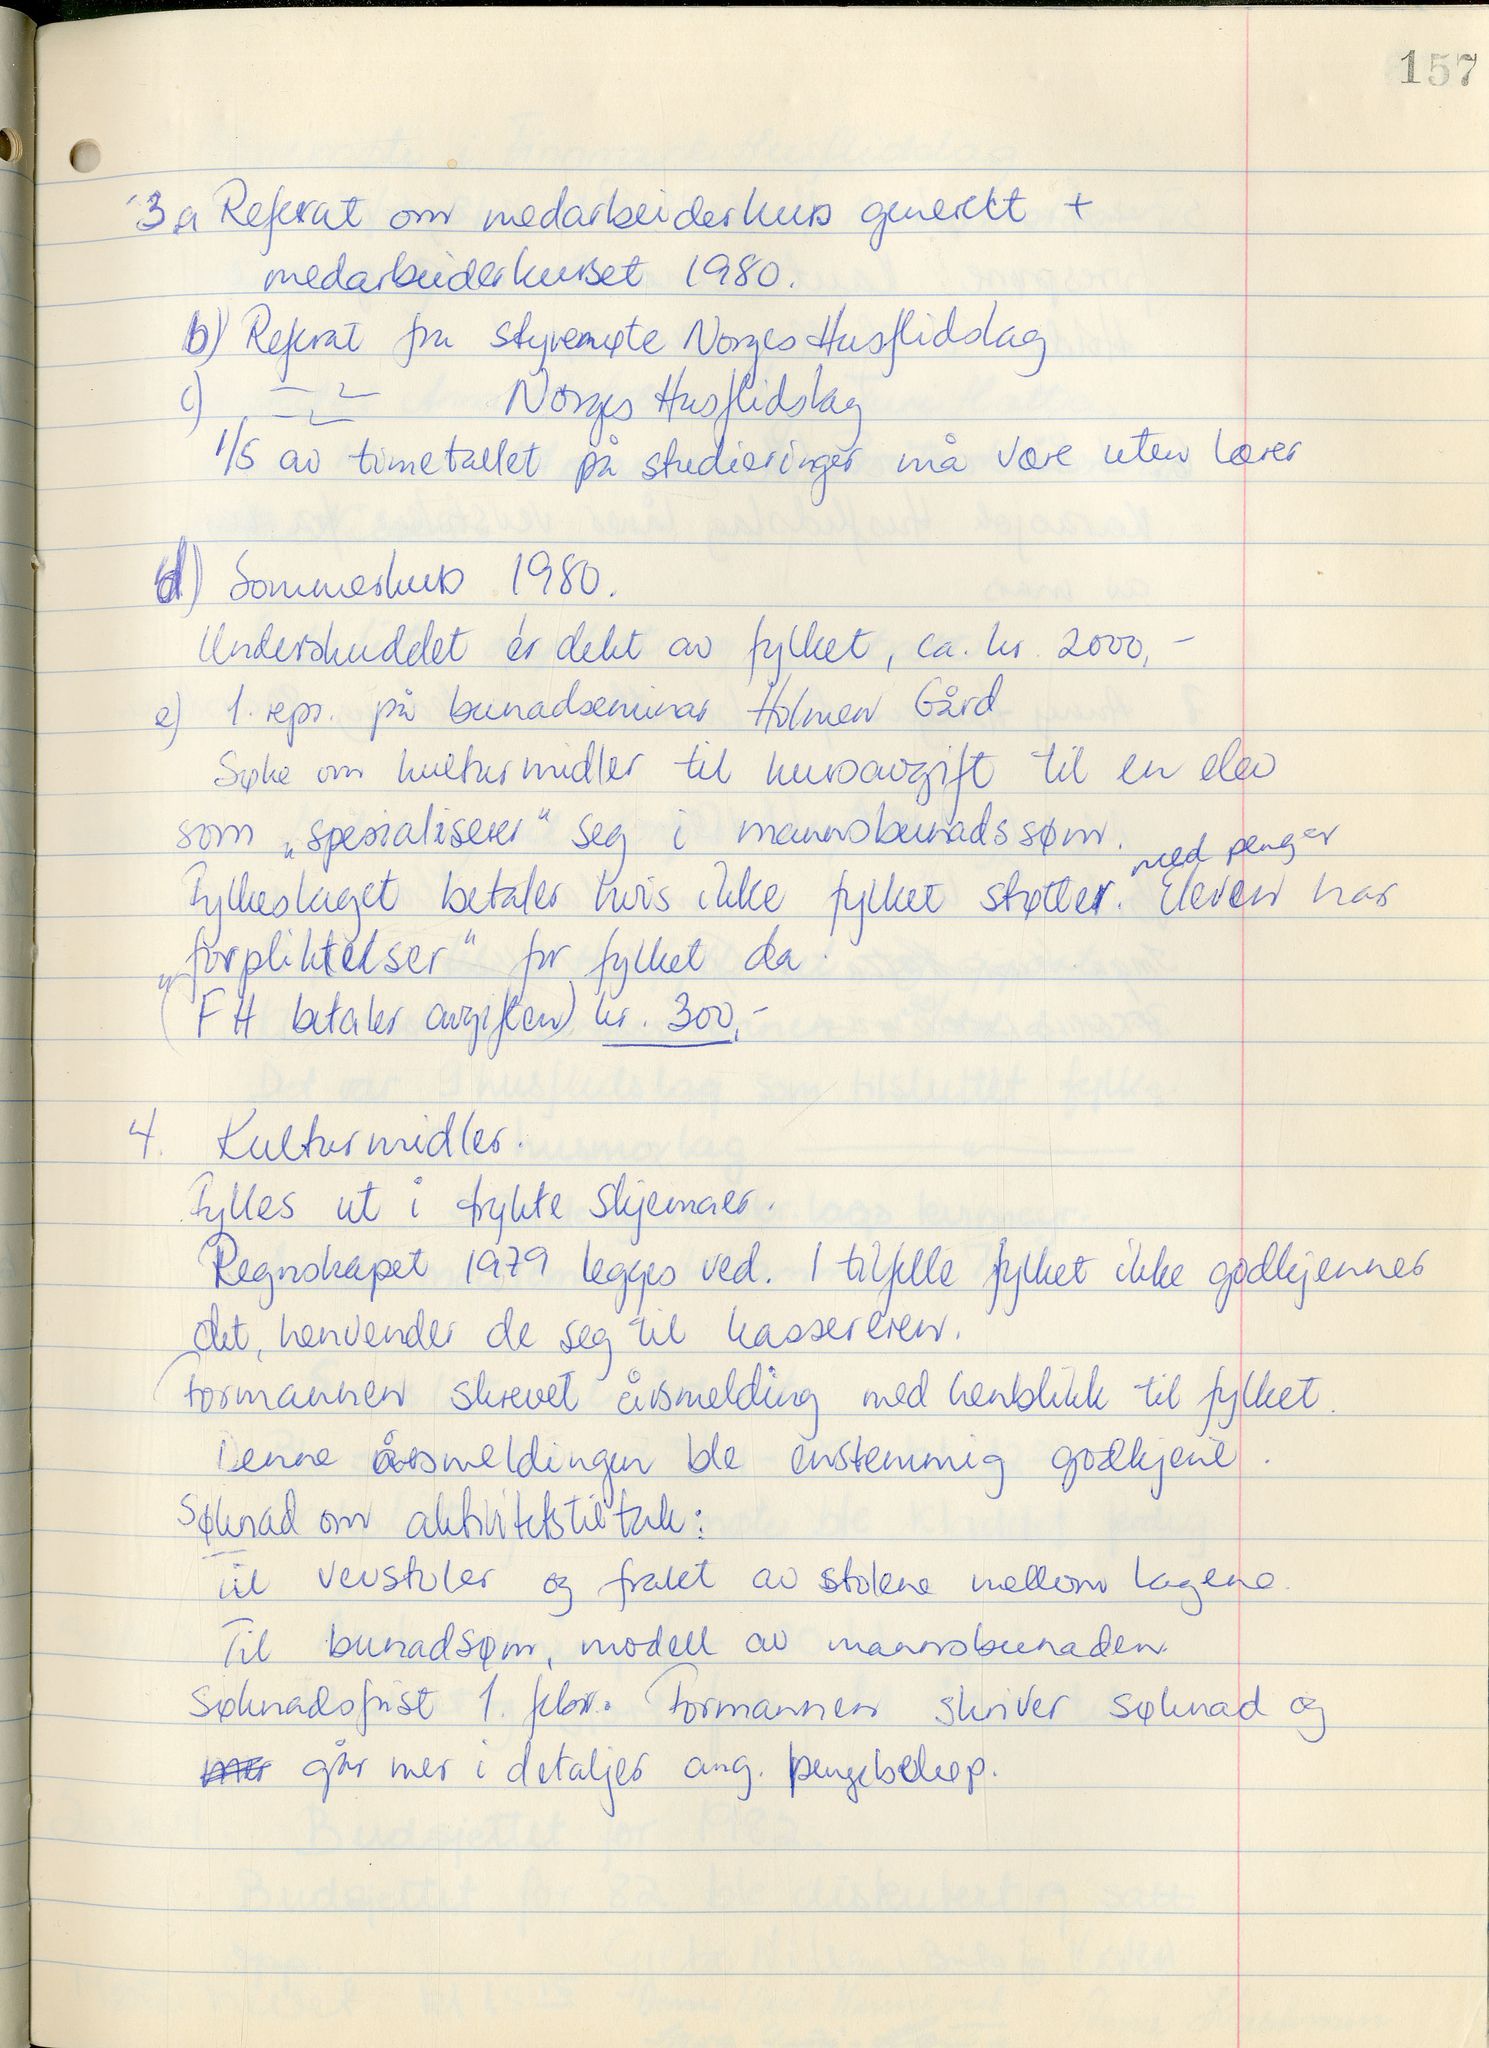 157
3a Referat om medarbeiderkurs generelt +
medarbeiderkurset 1980.
b) Referat fra styremøte Norges Husflidslag
c) —"— Norges Husflidslag
1/5 av timetallet på studieringer må være uten lærer
d) Sommerkurs 1980.
Underskuddet er dekt av fylket, ca. kr. 2000,-
e) 1. repr. på bunadseminar Holmen Gård
Søke om kulturmidler til kursavgift til en elev
som „spesialiserer" seg i mannsbunadssøm.
med penger
Fylkeslaget betaler hvis ikke fylket støtter. Eleven har
„forpliktelser" for fylket da.
(FH betaler avgiften) kr. 300,-
4. Kulturmidler.
Fylles ut i trykte skjemaer.
Regnskapet 1979 legges ved. I tilfelle fylket ikke godkjenner
det, henvender de seg til kassereren.
Formannen skrevet årsmelding med henblikk til fylket.
Denne årsmeldingen ble enstemmig godkjent.
Søknad om aktivitetstiltak:
Til vevstoler og frakt av stolene mellom lagene.
Til bunadsøm, modell av mannsbunaden.
Søknadsfrist 1. febr. Formannen skriver søknad og
går mer i detaljer ang. pengebeløp.